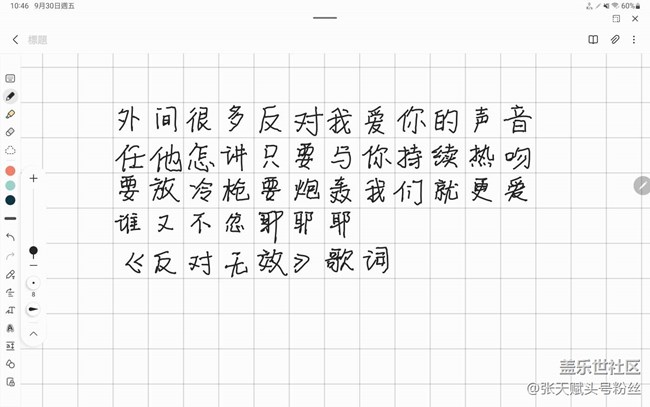 10:46 9月30日週五
60%
標題
外间很多反对我爱你的声音
任他怎讲只要与你持续热吻
要放冷枪要炮轰我们就更爱
谁又不忿耶耶耶
《反对无效》歌词
8
盖乐世社区
@张天赋头号粉丝